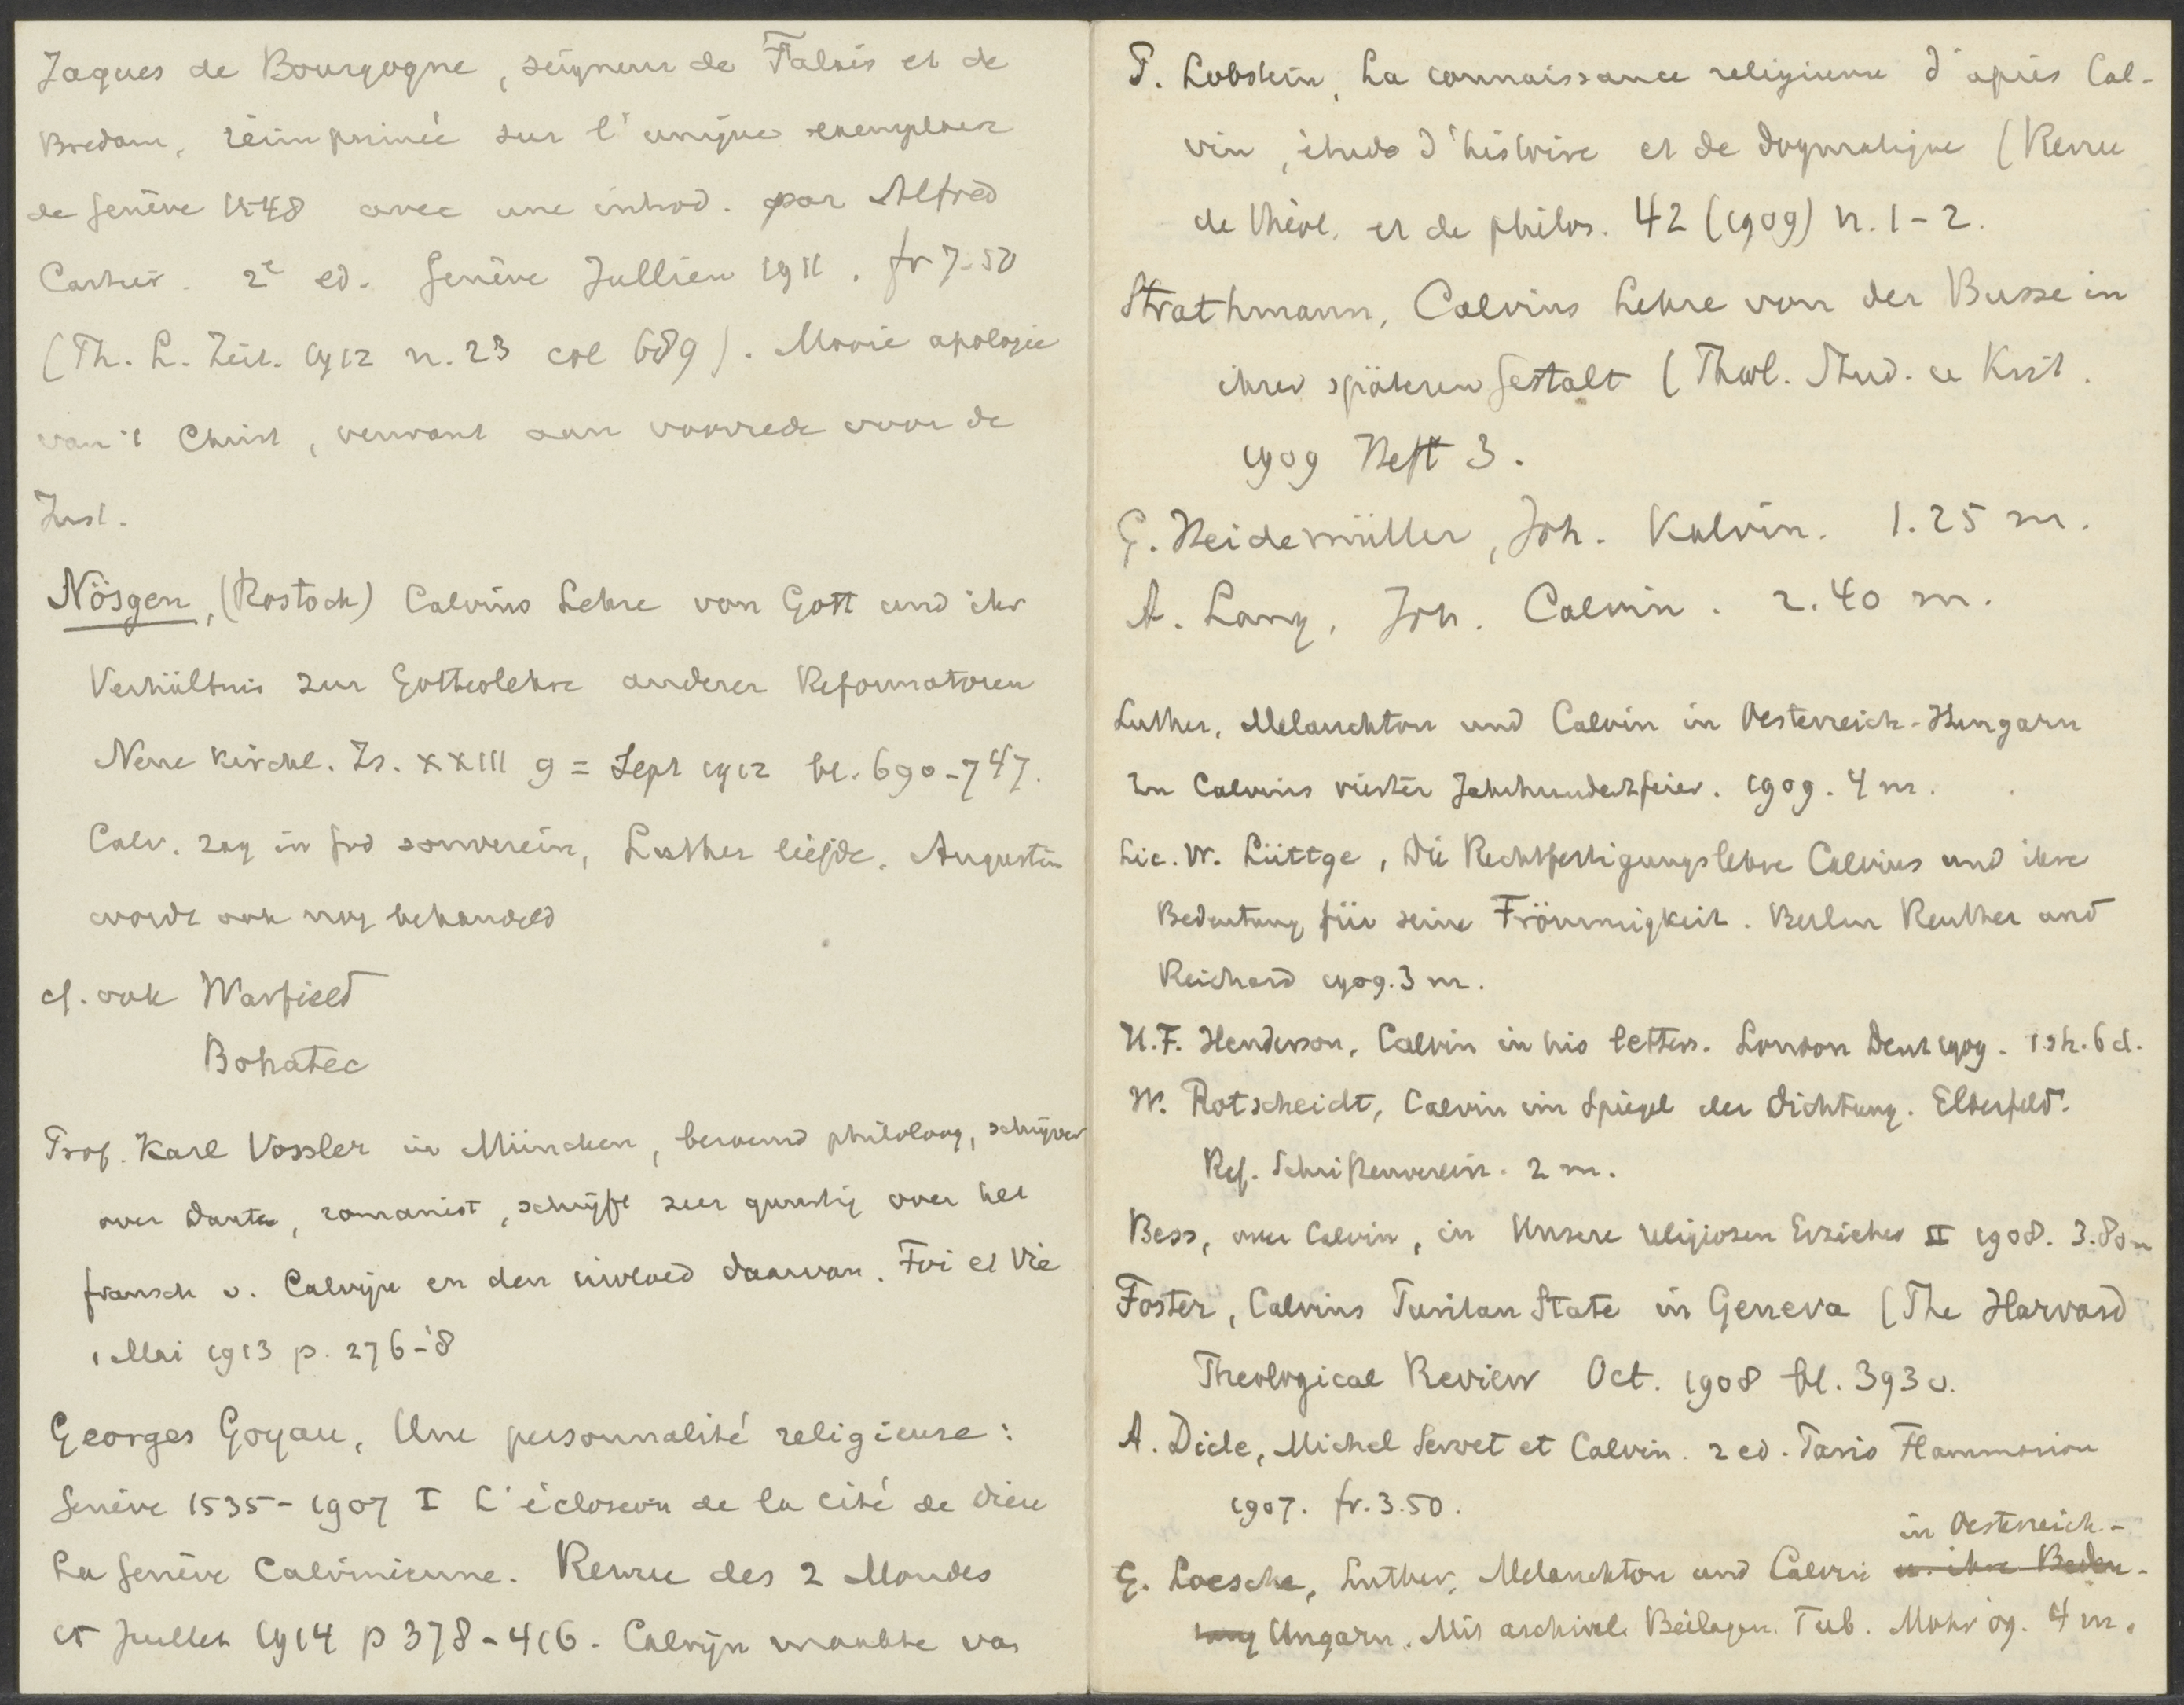 Jaques de Bourgogne, seigneur de Falais et de
Bredam, réimprimée sur l'unique exemplaire
de Genève 1548 avec une introd. par Alfred
Cartier. 2e ed. Genève Jullien 1911. fr 7.50
(Th. L. Zeit. 1912 n. 23 col 689). Mooie apologie
van 't Christ, verwant aan voorrede voor de
Inst.
Nösgen, (Rostock) Calvins Lehre von Gott und ihr
Verhältnis zur Gotteslehre anderer Reformatoren
Neue kirchl. Zs. XXIII 9 = Sept 1912 bl. 690-747.
Calv. zag in God souverein, Luther liefde. Augustin
wordt ook nog behandeld
cf. ook Warfield
Bohatec
Prof. Karl Vossler in München, beroemd philoloog, schrijver
over Dante, romanist, schrijft zeer gunstig over het
fransch v. Calvijn en den invloed daarvan. Foi et Vie
1 Mai 1913 p. 276-'8
Georges Goyau, Une personnalité religieuse:
Genève 1535-1907 I L'éclosion de la cité de Dieu
La Genève Calvinienne. Revue des 2 Mondes
15 Juillet 1914 p 378-416. Calvijn maakte van
P. Lobstein, La connaissance religieuse d'après Cal-
vin, étude d'histoire et de dogmatique (Revue
de théol. et de philos. 42 (1909) n. 1-2.
Strathmann, Calvins Lehre von der Busse in
ihrer späteren Gestalt (Theol. Stud. u Krit.
1909 Heft 3.
G. Heidemüller, Joh. Kalvin. 1.25 m.
A. Lang, Joh. Calvin. 2.40 m.
Luther, Melanchton und Calvin in Oesterreich-Hungarn
Zu Calvins vierter Jahrhundertfeier. 1909. 4 m.
Lic. W. Lüttge, Die Rechtfertigungslehre Calvins und ihre
Bedeutung für seine Frömmigkeit. Berlin Reuther and
Reichard 1909. 3 m.
H.F. Henderson, Calvin in his letters. London Dent 1909. 1 sh. 6 d.
W. Rotscheidt, Calvin im Spiegel der Dichtung. Elberfeld.
Ref. Schriftenverein. 2 m.
Bess, over Calvin, in Unsere religiosen Erzieher II 1908. 3.80 m
Foster, Calvins Puritan State in Geneva (The Harvard
Theological Review Oct. 1908 bl. 393 v.
A. Dide, Michel Servet et Calvin. 2 ed. Paris Flammarion
1907. fr. 3.50.
in Oesterreich-
G. Loesche, Luther, Melanchton und Calvin u. ihre Bedeu-
tung Ungarn. Mit archival. Beilagen. Tub. Mohr 09. 4 m.